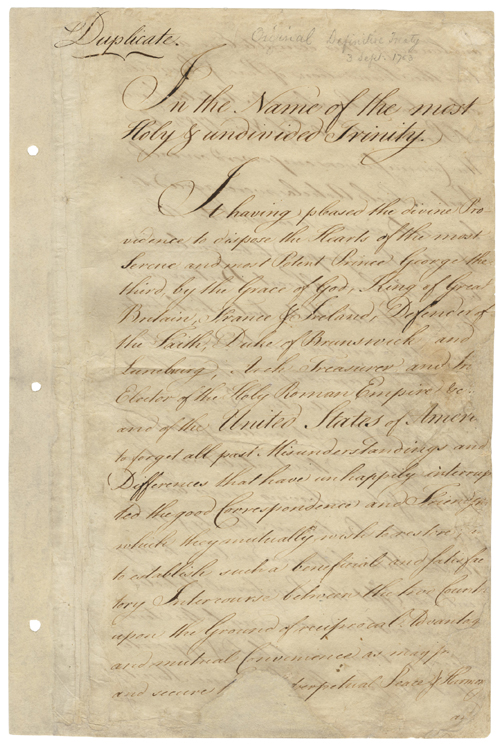 Duplicate.
Original Definitive Treaty
3 Sept. 1783
In the Name of the most
Holy & undivided Trinity.
It having pleased the divine Pro
vidence to dispose the Hearts of the most
Serene and most Potent Prince George the
third, by the Grace of God, King of Great
Britain, France & Ireland, Defender of
the Faith, Duke of Brunswick and
Luneburg, Arch Treasurer and
Elector of the Holy Roman Empire &c.
and of the United States of Ameri
to forget all past Misunderstandings and
Differences that have unhappily interrup
ted the good Correspondence and Friendship
which they mutually wish to restore;
to establish such a beneficial and satisfac
tory Intercourse between the two Count
upon the Ground of reciprocal Advantag
and mutual Convenience as may
and secure perpetual Peace & Harmony